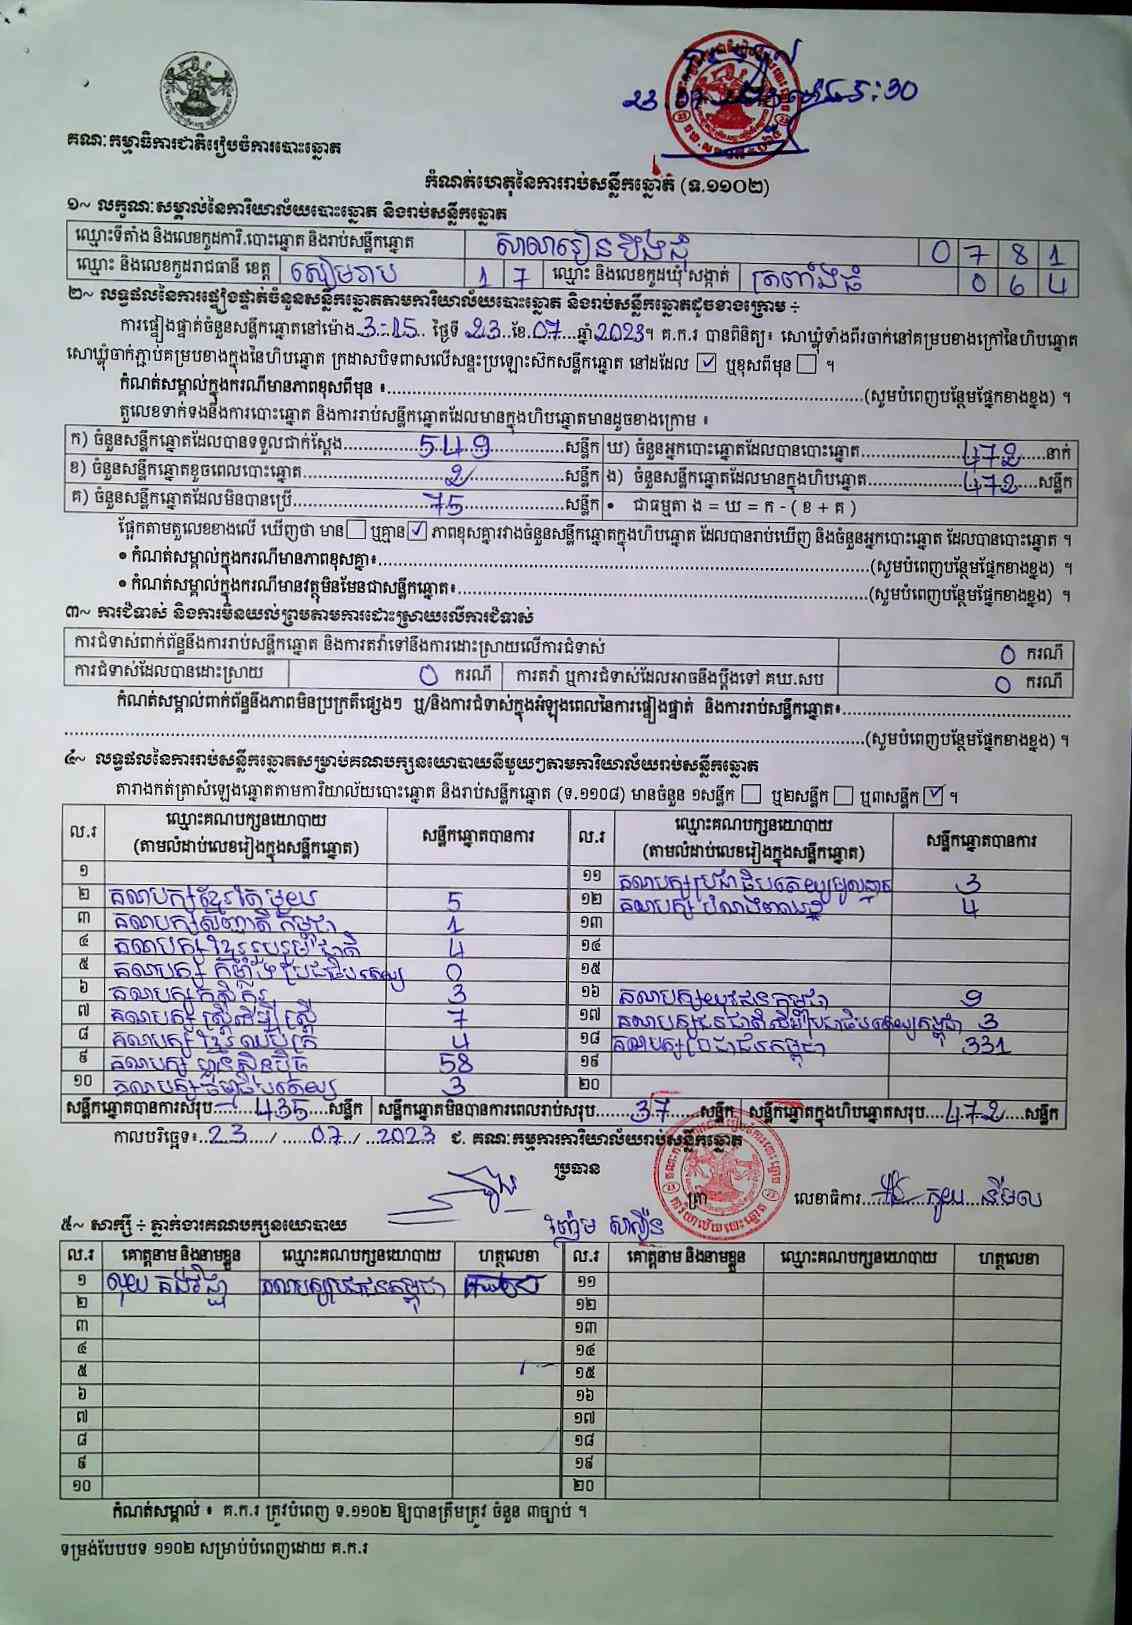 23
30
គណៈកម្មាធិការជាតិរៀបចំការបោះឆ្នោត
កំណត់ហេតុនៃការរាប់សន្លឹកឆ្នោត (ទ.១១០២)
១~ លក្ខណៈសម្គាល់នៃការិយាល័យបោះឆ្នោត និងរាប់សន្លឹកឆ្នោត
ឈ្មោះទីតាំង និងលេខកូដការិ.បោះឆ្នោត និងរាប់សន្លឹកឆ្នោត សាលារៀនបឹងជុំ 0 7 8 1
ឈ្មោះ និងលេខកូដរាជធានី ខេត្ត សៀមរាប 1 7 ឈ្មោះ និងលេខកូដឃុំ សង្កាត់ ត្រពាំងធំ 0 6 4
២~ លទ្ធផលនៃការផ្ទៀងផ្ទាត់ចំនួនសន្លឹកឆ្នោតតាមការិយាល័យបោះឆ្នោត និងរាប់សន្លឹកឆ្នោតដូចខាងក្រោម ÷
ការផ្ទៀងផ្ទាត់ចំនួនសន្លឹកឆ្នោតនៅម៉ោង 3:15 ថ្ងៃទី 23 ខែ 07 ឆ្នាំ 2023។ គ.ក.រ បានពិនិត្យ៖ សោឃ្លុំទាំងពីរចាក់នៅគម្របខាងក្រៅនៃហិបឆ្នោត
សោឃ្លុំចាក់ភ្ជាប់គម្របខាងក្នុងនៃហិបឆ្នោត ក្រដាសបិទពាសលើសន្ទះប្រឡោះស៊កសន្លឹកឆ្នោត នៅដដែល ☑ ឬខុសពីមុន ☐ ។
កំណត់សម្គាល់ក្នុងករណីមានភាពខុសពីមុន ៖ (សូមបំពេញបន្ថែមផ្នែកខាងខ្នង) ។
តួលេខទាក់ទងនឹងការបោះឆ្នោត និងការរាប់សន្លឹកឆ្នោតដែលមានក្នុងហិបឆ្នោតមានដូចខាងក្រោម ៖
ក) ចំនួនសន្លឹកឆ្នោតដែលបានទទួលជាក់ស្តែង 549 សន្លឹក ឃ) ចំនួនអ្នកបោះឆ្នោតដែលបានបោះឆ្នោត 472 នាក់
ខ) ចំនួនសន្លឹកឆ្នោតខូចពេលបោះឆ្នោត 2 សន្លឹក ង) ចំនួនសន្លឹកឆ្នោតដែលមានក្នុងហិបឆ្នោត 472 សន្លឹក
គ) ចំនួនសន្លឹកឆ្នោតដែលមិនបានប្រើ 75 សន្លឹក • ជាធម្មតា ង = ឃ = ក - ( ខ + គ )
ផ្អែកតាមតួលេខខាងលើ ឃើញថា មាន ☐ ឬគ្មាន ☑ ភាពខុសគ្នារវាងចំនួនសន្លឹកឆ្នោតក្នុងហិបឆ្នោត ដែលបានរាប់ឃើញ និងចំនួនអ្នកបោះឆ្នោត ដែលបានបោះឆ្នោត ។
• កំណត់សម្គាល់ក្នុងករណីមានភាពខុសគ្នា៖ (សូមបំពេញបន្ថែមផ្នែកខាងខ្នង) ។
• កំណត់សម្គាល់ក្នុងករណីមានវត្ថុមិនមែនជាសន្លឹកឆ្នោត៖ (សូមបំពេញបន្ថែមផ្នែកខាងខ្នង) ។
៣~ ការជំទាស់ និងការមិនយល់ព្រមតាមការដោះស្រាយលើការជំទាស់
ការជំទាស់ពាក់ព័ន្ធនឹងការរាប់សន្លឹកឆ្នោត និងការតវ៉ាទៅនឹងការដោះស្រាយលើការជំទាស់ 0 ករណី
ការជំទាស់ដែលបានដោះស្រាយ 0 ករណី ការតវ៉ា ឬការជំទាស់ដែលអាចនឹងប្តឹងទៅ គឃ.សប 0 ករណី
កំណត់សម្គាល់ពាក់ព័ន្ធនឹងភាពមិនប្រក្រតីផ្សេងៗ ឬ/និងការជំទាស់ក្នុងអំឡុងពេលនៃការផ្ទៀងផ្ទាត់ និងការរាប់សន្លឹកឆ្នោត៖
(សូមបំពេញបន្ថែមផ្នែកខាងខ្នង) ។
៤~ លទ្ធផលនៃការរាប់សន្លឹកឆ្នោតសម្រាប់គណបក្សនយោបាយនីមួយៗតាមការិយាល័យរាប់សន្លឹកឆ្នោត
តារាងកត់ត្រាសំឡេងឆ្នោតតាមការិយាល័យបោះឆ្នោត និងរាប់សន្លឹកឆ្នោត (ទ.១១០៨) មានចំនួន ១សន្លឹក ☐ ឬ២សន្លឹក ☐ ឬ៣សន្លឹក ☑ ។
ល.រ ឈ្មោះគណបក្សនយោបាយ (តាមលំដាប់លេខរៀងក្នុងសន្លឹកឆ្នោត) សន្លឹកឆ្នោតបានការ ល.រ ឈ្មោះគណបក្សនយោបាយ (តាមលំដាប់លេខរៀងក្នុងសន្លឹកឆ្នោត) សន្លឹកឆ្នោតបានការ
១ ១១ គណបក្សប្រជាធិបតេយ្យមូលដ្ឋាន 3
២ គណបក្សខ្មែរតែមួយ 5 ១២ គណបក្ស 4
៣ គណបក្សសញ្ជាតិកម្ពុជា 1 ១៣
៤ គណបក្សខ្មែររួបរួមជាតិ 4 ១៤
៥ គណបក្ស កម្លាំងប្រជាធិបតេយ្យ 0 ១៥
៦ គណបក្សកសិករ 3 ១៦ គណបក្សយុវជនកម្ពុជា 9
៧ គណបក្សស្ត្រីដើម្បីស្ត្រី 7 ១៧ គណបក្សជនជាតិដើមប្រជាធិបតេយ្យកម្ពុជា 3
៨ គណបក្សខ្មែរឈប់ក្រ 4 ១៨ គណបក្សប្រជាជនកម្ពុជា 331
៩ គណបក្ស ហ្វ៊ុនស៊ិនប៉ិច 58 ១៩
១០ គណបក្សធម្មាធិបតេយ្យ 3 ២០
សន្លឹកឆ្នោតបានការសរុប 435 សន្លឹក សន្លឹកឆ្នោតមិនបានការពេលរាប់សរុប 37 សន្លឹក សន្លឹកឆ្នោតក្នុងហិបឆ្នោតសរុប 472 សន្លឹក
កាលបរិច្ឆេទ៖ 23 / 07 / 2023 ជ. គណៈកម្មការការិយាល័យរាប់សន្លឹកឆ្នោត
ប្រធាន
ត្រា លេខាធិការ
៥~ សាក្សី ÷ ភ្នាក់ងារគណបក្សនយោបាយ
ល.រ គោត្តនាម និងនាមខ្លួន ឈ្មោះគណបក្សនយោបាយ ហត្ថលេខា ល.រ គោត្តនាម និងនាមខ្លួន ឈ្មោះគណបក្សនយោបាយ ហត្ថលេខា
១ គណបក្សប្រជាជនកម្ពុជា ១១
២ ១២
៣ ១៣
៤ ១៤
៥ ១៥
៦ ១៦
៧ ១៧
៨ ១៨
៩ ១៩
១០ ២០
កំណត់សម្គាល់ ៖ គ.ក.រ ត្រូវបំពេញ ទ.១១០២ ឱ្យបានត្រឹមត្រូវ ចំនួន ៣ច្បាប់ ។
ទម្រង់បែបបទ ១១០២ សម្រាប់បំពេញដោយ គ.ក.រ